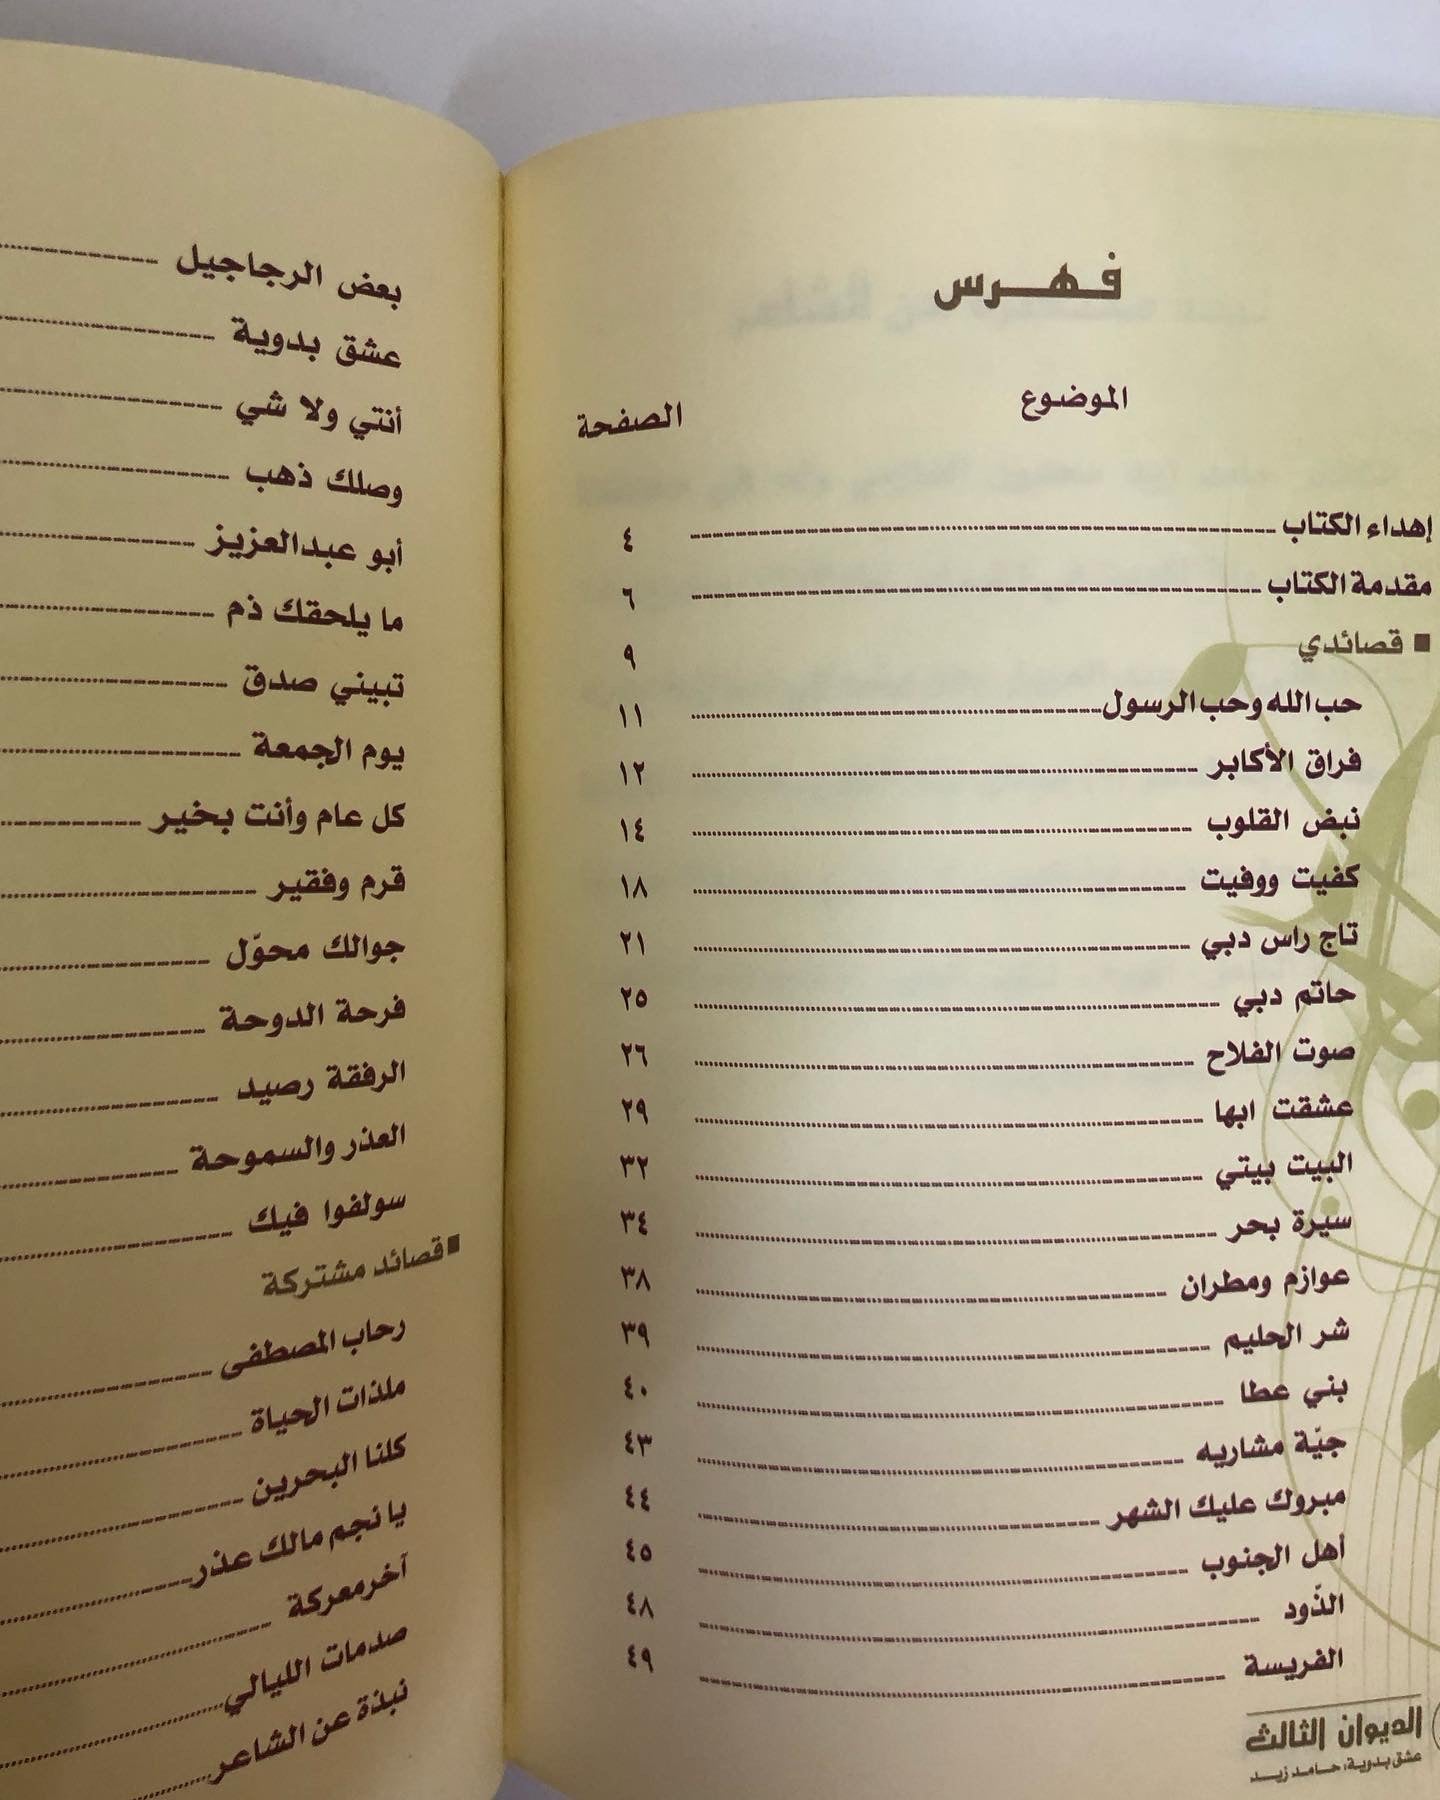 فهرس
الموضوع الصفحة
إهداء الكتاب ٤
مقدمة الكتاب ٦
■ قصائدي ٩
حب الله وحب الرسول ١١
فراق الأكابر ١٢
نبض القلوب ١٤
كفيت ووفيت ١٨
تاج راس دبي ٢١
حاتم دبي ٢٥
صوت الفلاح ٢٦
عشقت ابها ٢٩
البيت بيتي ٣٢
سيرة بحر ٣٤
عوازم ومطران ٣٨
شر الحليم ٣٩
بني عطا ٤٠
جيّة مشاريه ٤٣
مبروك عليك الشهر ٤٤
أهل الجنوب ٤٥
الذّود ٤٨
الفريسة ٤٩
الديوان الثالث
عشق بدوية: حامد زيد
بعض الرجاجيل
عشق بدوية
أنتي ولا شي
وصلك ذهب
أبو عبدالعزيز
ما يلحقك ذم
تبيني صدق
يوم الجمعة
كل عام وأنت بخير
قرم وفقير
جوالك محوّل
فرحة الدوحة
الرفقة رصيد
العذر والسموحة
سولفوا فيك
■ قصائد مشتركة
رحاب المصطفى
ملذات الحياة
كلنا البحرين
يا نجم مالك عذر
آخر معركة
صدمات الليالي
نبذة عن الشاعر